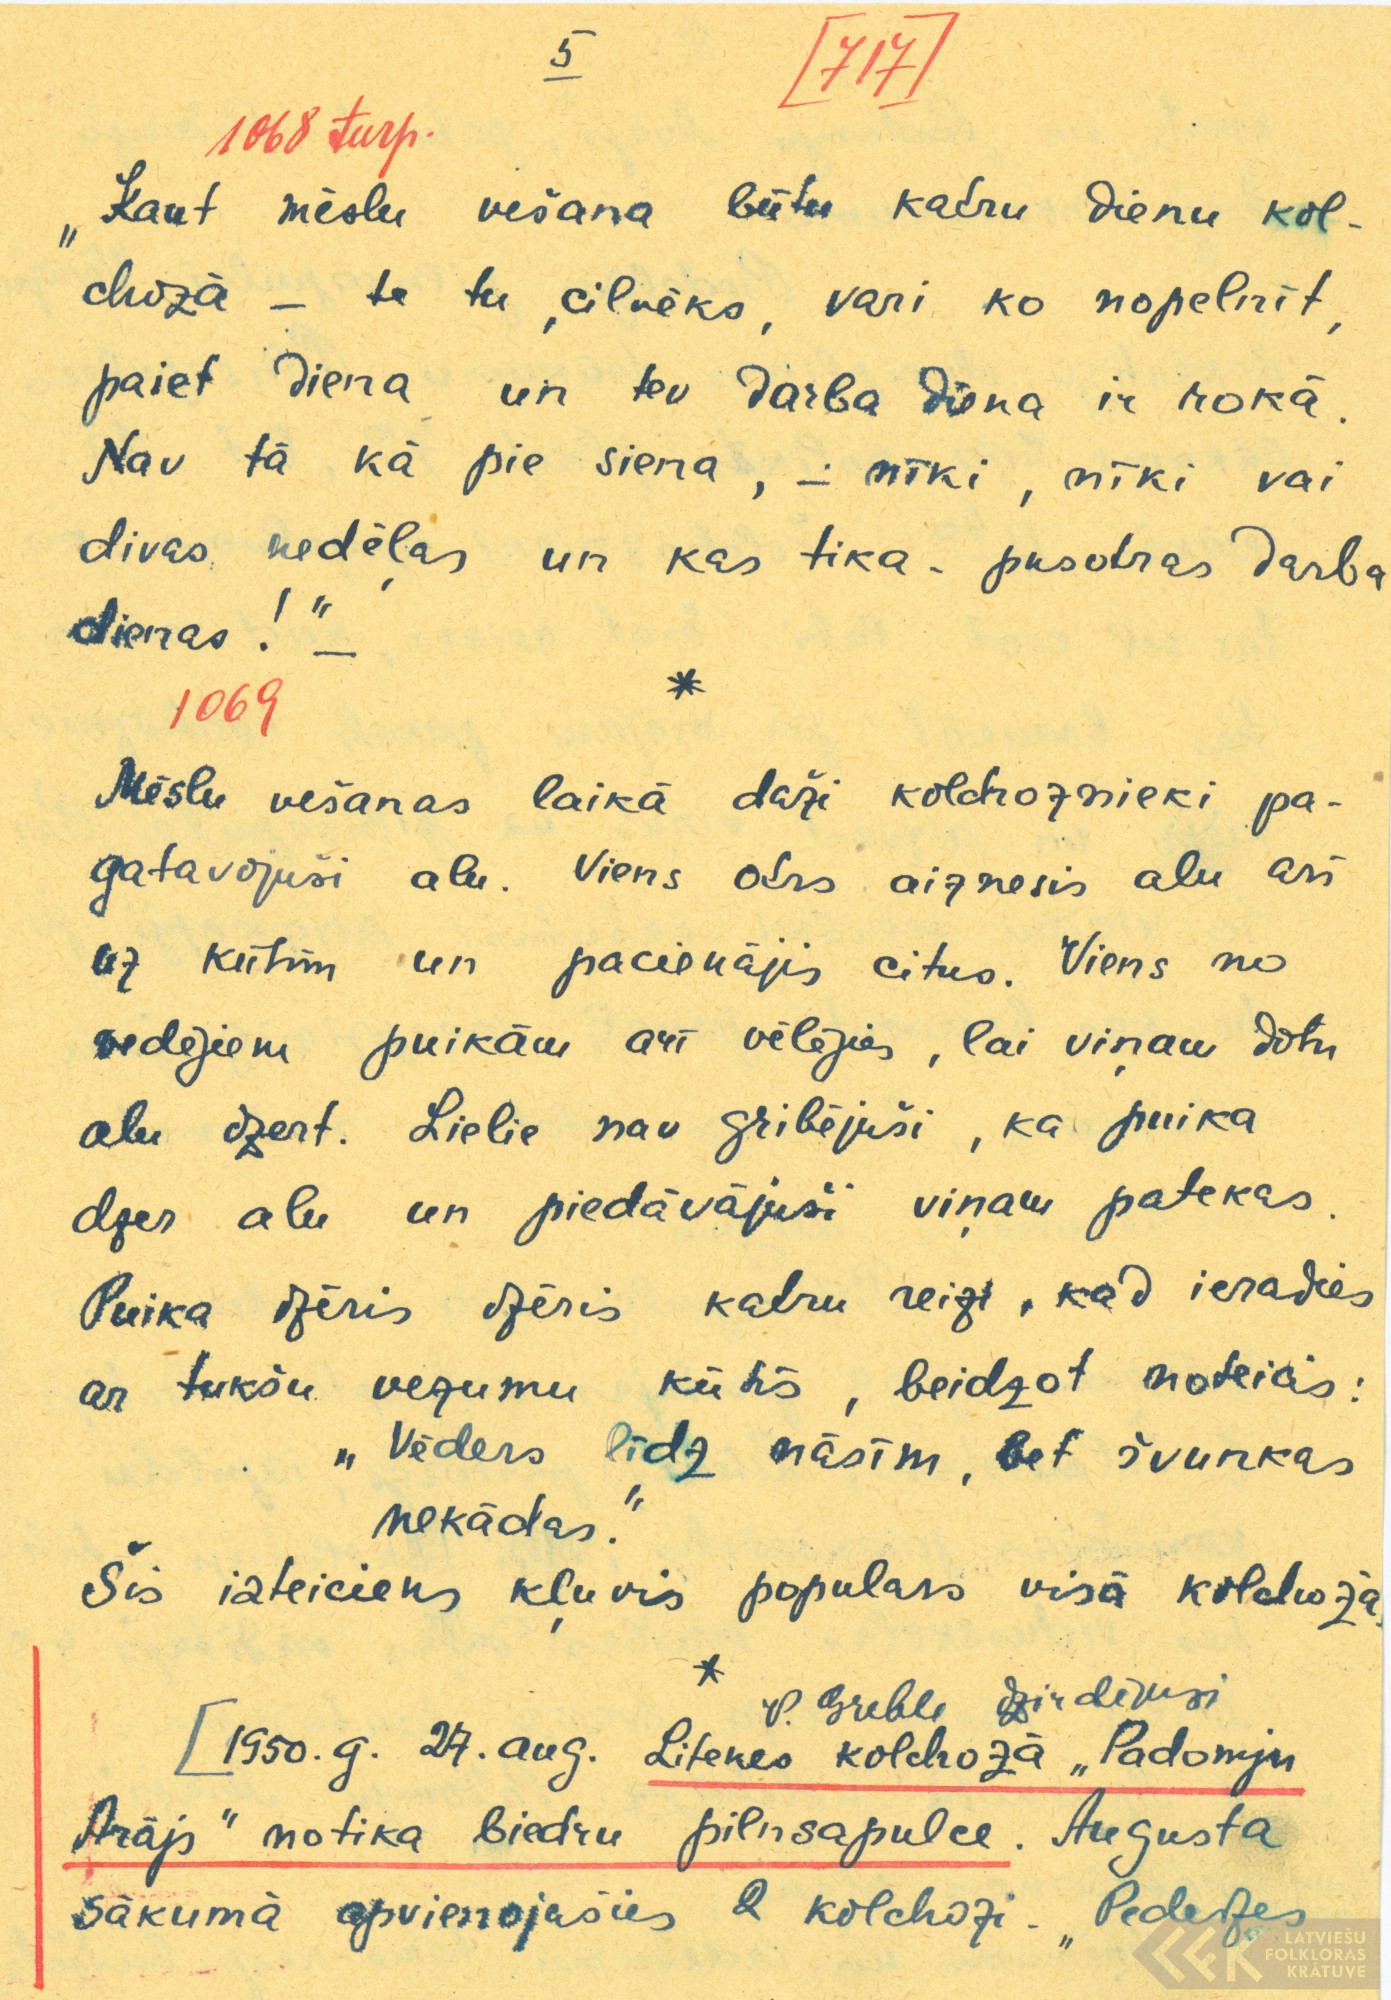 5 [717]
1068 turp.
„Kaut mēslu vešana būtu katru dienu kol-
chozā – te tu, cilvēks, vari ko nopelnīt,
paiet diena un tev darba diena ir rokā.
Nav tā kā pie siena, – nīki, nīki vai
divas nedēļas un kas tika - pusotras darba
dienas!“ –
*
1069
Mēslu vešanas laikā daži kolchoznieki pa-
gatavojuši alu. Viens otrs aiznesis alu arī
uz kūtīm un pacienājis citus. Viens no
vedējiem puikām arī vēlējies, lai viņam dotu
alu dzert. Lielie nav gribējuši, ka puika
dzer alu un piedāvājuši viņam patekas.
Puika dzēris dzēris katru reizi, kad ieradies
ar tukšu vezumu kūtīs, beidzot noteicis:
„Vēders līdz nāsīm, bet švunkas
nekādas.“
Šis izteiciens kļuvis populars visā kolchozā.
*
V. Greble dzirdējusi
[1950. g. 27. aug. Litenes kolchozā „Padomju
Arājs“ notika biedru pilnsapulce. Augusta
sākumā apvienojušies 2 kolchozi - „Pededzes
LATVIEŠU
FOLKLORAS
KRĀTUVE